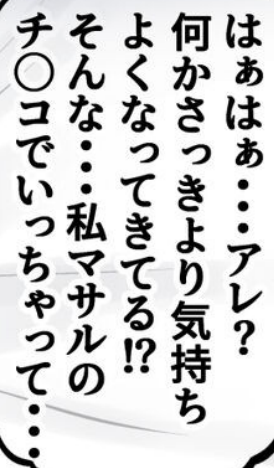 はぁはぁ・・・アレ？
何かさっきより気持ち
よくなってきてる!?
そんな・・・私マサルの
チ〇コでいっちゃって・・・